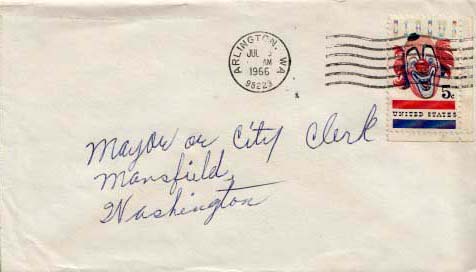 ARLINGTON, WA
JUL
AM
1966
98223
5c
UNITED STATES
Mayor or City Clerk
Mansfield,
Washington